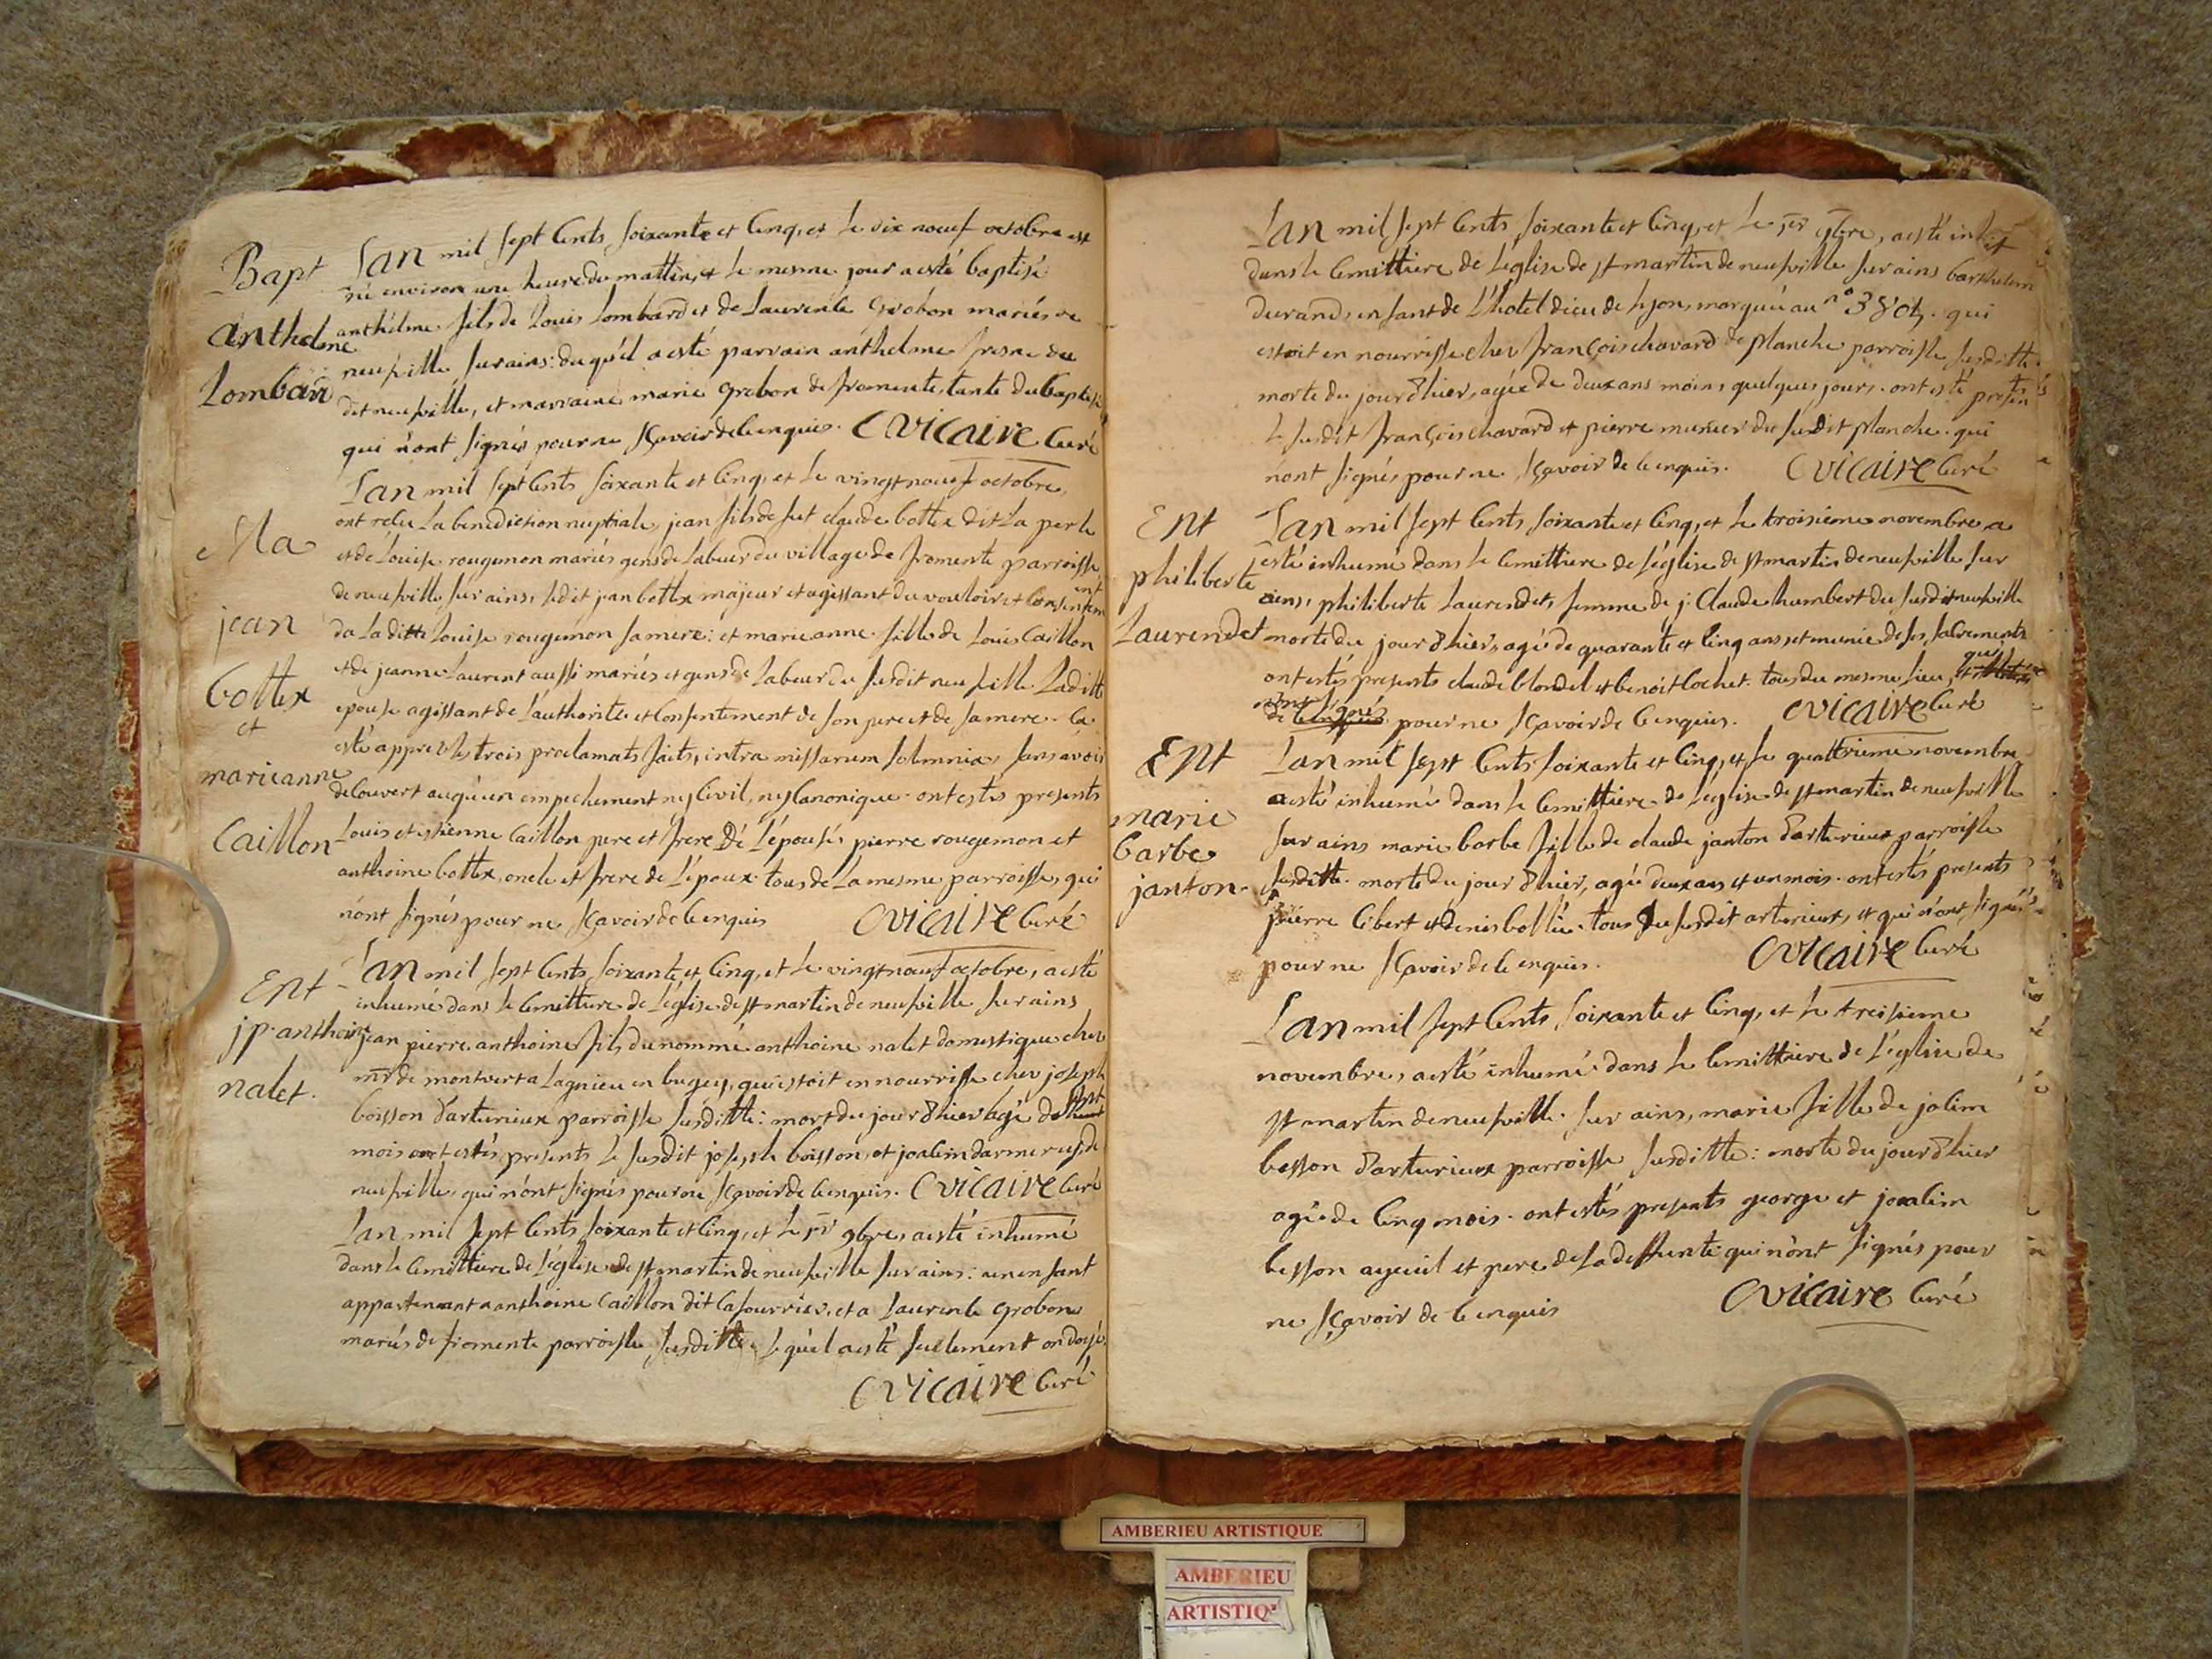 Bapt
anthelme
Lombard
Lan mil sept Cents soixante et Cinq, et Le dix noeuf octobre est
né environ une heure du mattin, et Le mesme jour a esté baptisé
anthelme fils de Louis Lombard et de Laurence Grobon mariés de
neufville sur ains: duquél a esté parrain anthelme fresne du
dit neufville, et marraine marie grobon de fromente, tante du baptisé
qui n'ont signés pour ne sçavoir de Ce enquis. C VICaire Curé
Ma
jean
bottex
et
marieanne
Caillon
Lan mil sept Cents soixante et Cinq, et Le vingt noeuf octobre,
ont reçu La benediction nuptiale, jean fils de fut claude bottex dit La perle
et de Louise rougemon mariés gens de Labeur du village de fromente parroisse
de neufville sur ains, Ledit jean bottex majeur et agissant du vouloir et Consentement
de La ditte Louise rougemon sa mere: et marieanne fille de Louis Caillon
et de jeanne Laurent aussi mariés et gens de Labeur du susdit neufville Laditte
epouse agissant de L'authorité et Consentement de son pere et de sa mere. Ce
esté apprez les trois proclamats faits, intra missarum solemnia, sans avoir
decouvert auqu'un empechement ny Civil, ny Canonique. ont estés presents
Louis et estienne Caillon pere et frere de L'épouse, pierre rougemon et
anthoine bottex, oncle et frere de L'époux tous de La mesme parroisse, qui
n'ont signés pour ne sçavoir de Ce enquis C VICaire Curé
Ent
jp. anthoine
nalet.
Lan mil sept Cents soixante et Cinq, et Le vingt noeuf octobre, a esté
inhumé dans Le Cemittiere de L'église de st martin de neufville sur ains
jean pierre anthoine fils du nommé anthoine nalet domestique chez
mr de montverta Lagnieu en bugey, qui estoit en nourrisse chez joseph
boisson d'arturieux parroisse susditte: mort du jour d'hier agé de
mois ont estés presents Le susdit joseph boisson, et joachim darmerey de
neufville, qui n'ont signés pour ne sçavoir de Ce enquis. C VICaire Curé
Lan mil sept Cents soixante et Cinq, et Le pr 9bre, a esté inhumé
dans Le Cemittiere de L'église de st martin de neufville sur ains: un enfant
appartenant a anthoine Caillon dit Lafourrier, et a Laurence Grobon
mariés de fromente parroisse susditte. Lequél a esté seulement ondoyé.
C VICaire Curé
Lan mil sept Cents soixante et Cinq, et Le pr 9bre, a esté
dans Le Cemittiere de Leglise de st martin de neufville sur ains barthelem
durand, enfant de L'hotel dieu de Lyon, marqué au n° qui
estoit en nourrisse chez françois chavard de planche parroisse susditte.
morte du jour d'hier, agée de deux ans moins quelques jours. ont esté presen
Le susdit françois chavard et pierre munier du susdit planche. qui
n'ont signés pour ne sçavoir de Ce enquis. C VICaire Curé
Ent
philiberte
Laurendet
Lan mil sept Cents soixante et Cinq, et Le troisieme novembre a
esté inhumé dans Le Cemittiere de L'église de st martin de neufville sur
ains, philiberte Laurendet, femme de j. Claude humbert du susdit neufville
morte du jour d'hier, agé de quarante et Cinq ans, et munie de ses sacrements
ont estés presents claude blondel et benoit Cochet tous du mesme Lieu, qui
n'ont signés pour ne sçavoir de Ce enquis. C VICaire Curé
Ent
marie
barbe
janton.
Lan mil sept Cents soixante et Cinq, et Le quattrieme novembre
a esté inhumé dans Le Cemittiere de Leglise de st martin de neufville
sur ains marie barbe fille de claude janton d'arturieux parroisse
susditte. morte du jour d'hier, agée deux ans et un mois. ont estés presents
pierre Cibert et denis bollié. tous du susdit arturieux, et qui n'ont signés
pour ne sçavoir de Ce enquis. C VICaire Curé
Lan mil sept Cents soixante et Cinq, et Le treisieme
novembre, a esté inhumé dans Le Cemittiere de L'église de
st martin de neufville sur ains, marie fille de
besson d'arturieux parroisse susditte: morte du jour d'hier
agée de Cinq mois. ont estés presents george et joachim
besson ayeuil et pere de La deffunte qui n'ont signés pour
ne sçavoir de Ce enquis C VICaire Curé
AMBERIEU ARTISTIQUE
AMBERIEU
ARTISTIQ